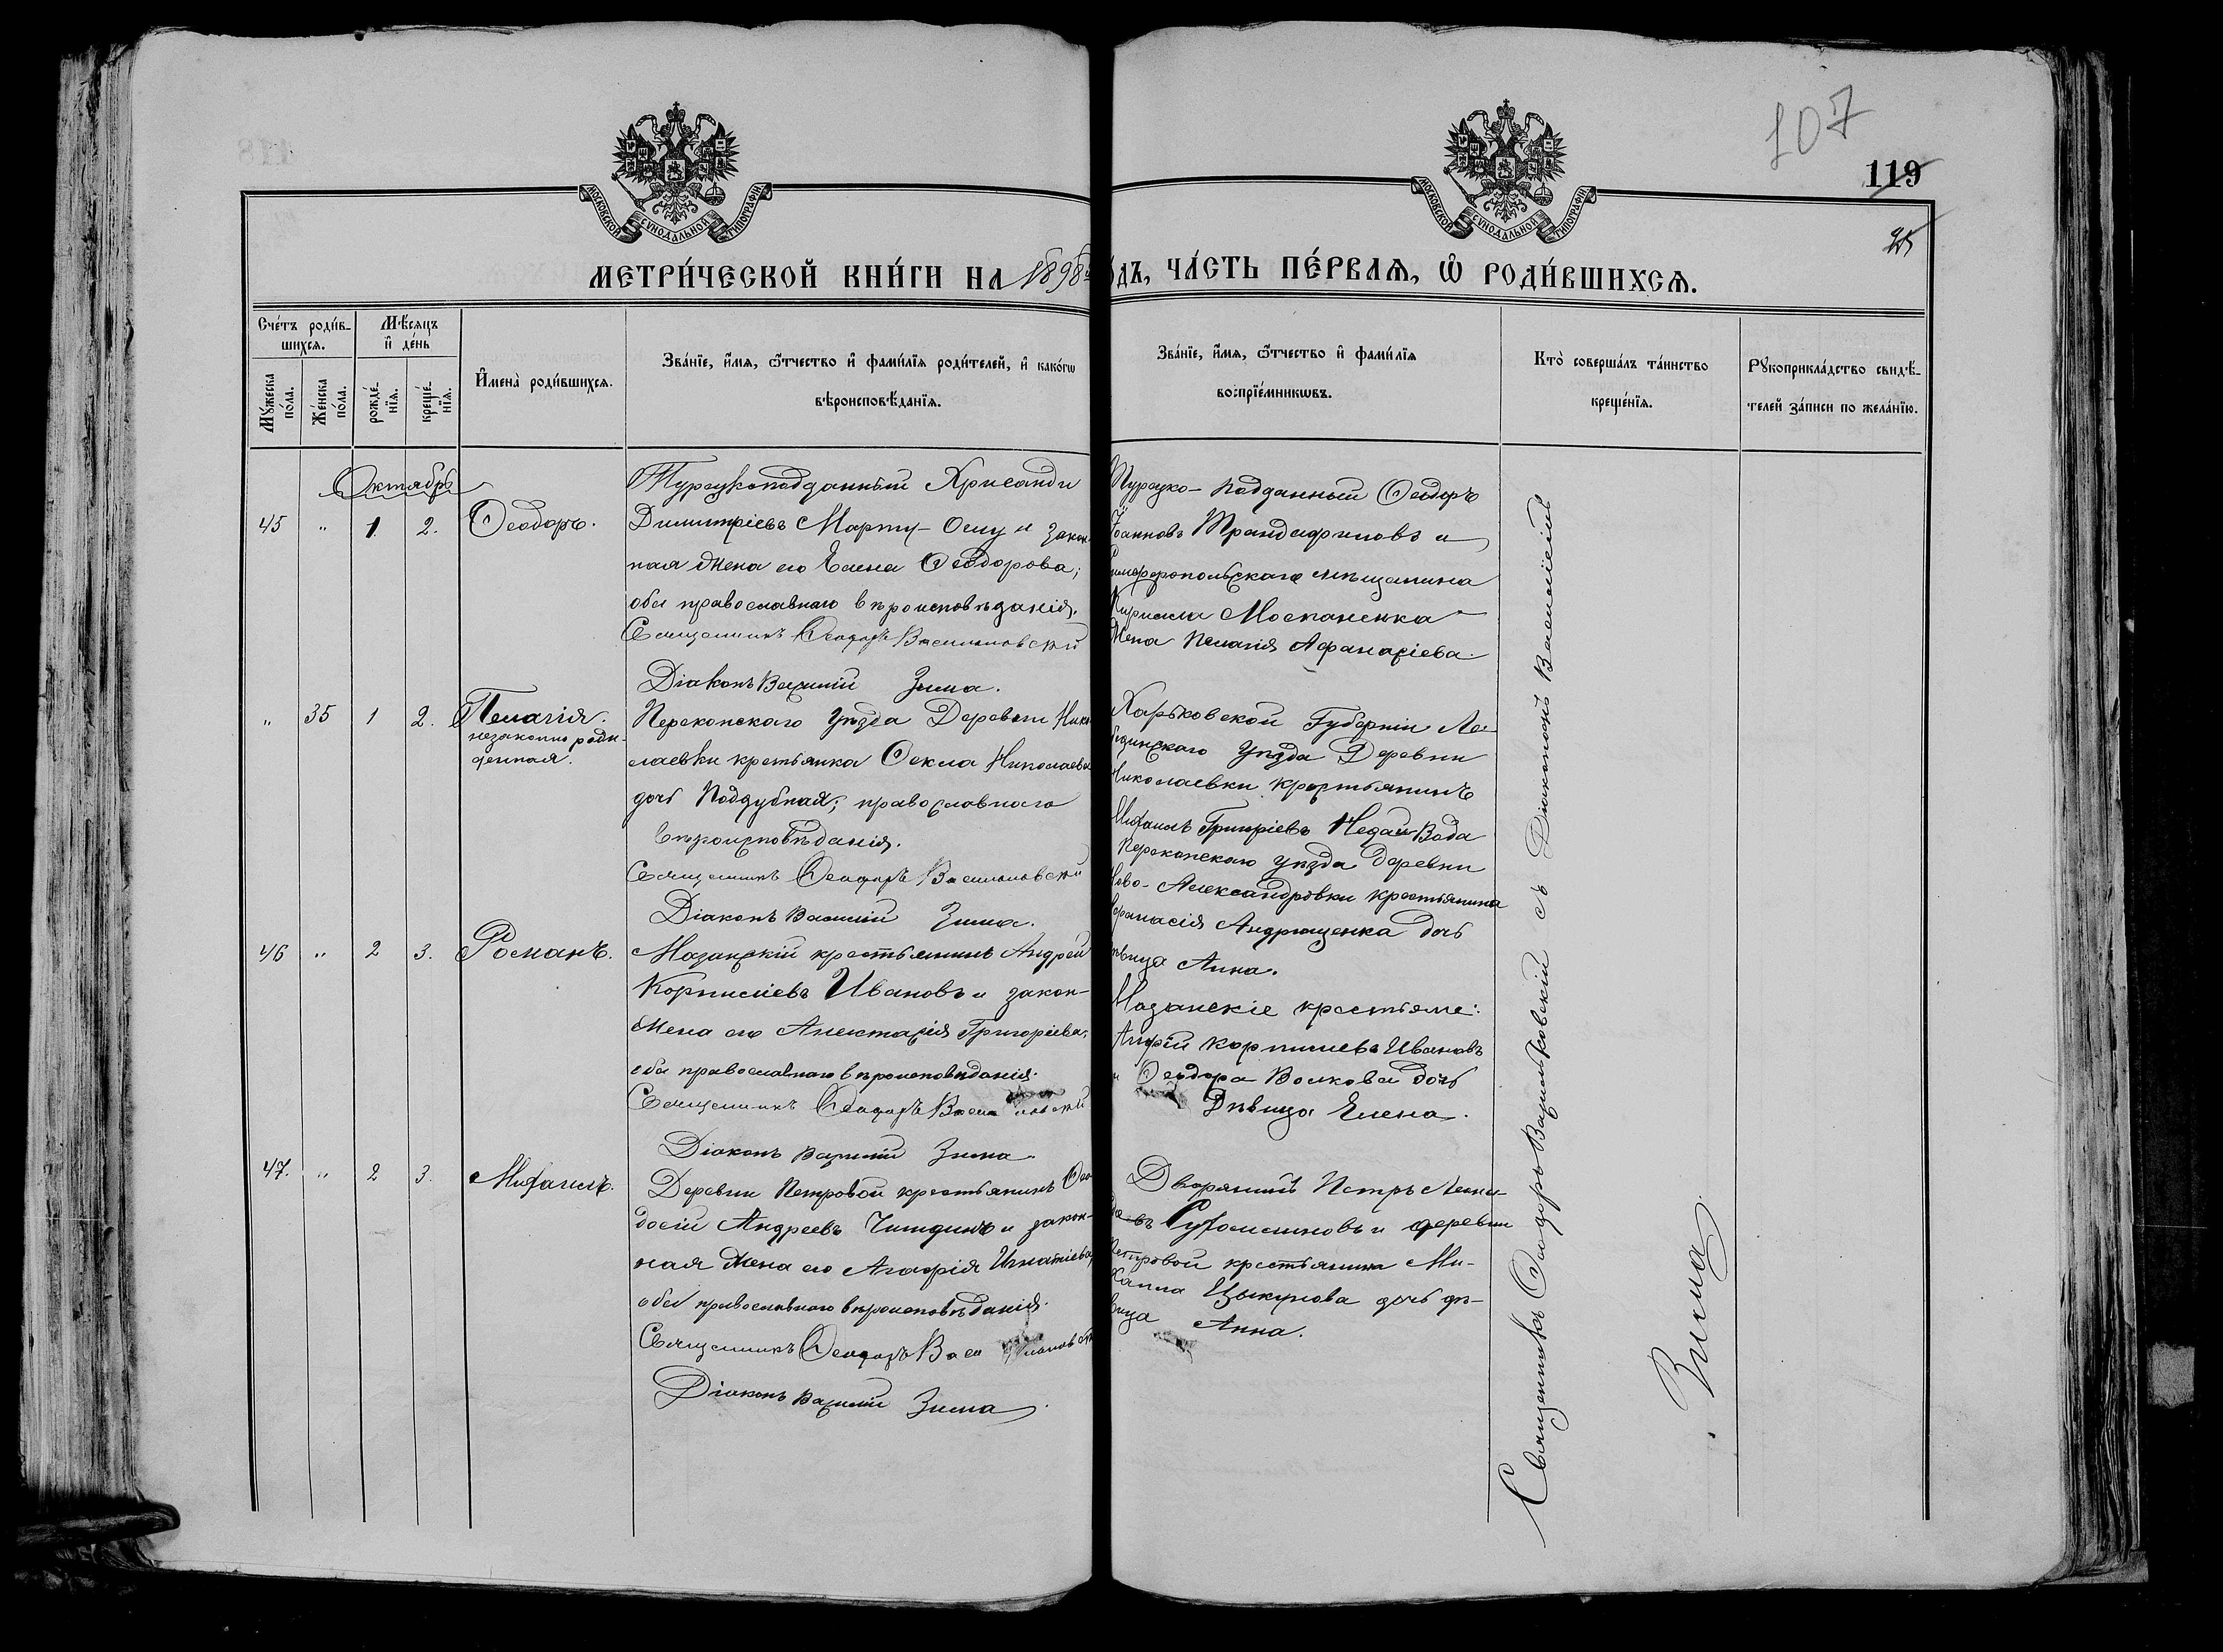 107
119
МОСКОВСКОЙ СУНОДАЛЬНОЙ ТИПОГРАФІИ
МОСКОВСКОЙ СУНОДАЛЬНОЙ ТИПОГРАФІИ
МЕТРИ́ЧЕСКОЙ КНИ́ГИ НА 1898
ДЪ, ЧА́СТЬ ПЕ́РВАѦ, Ѡ҆ РОДИ́ВШИХСѦ.
Сче́тъ роди́в-
шихсѧ.
Мѣ́сѧцъ
и҆ де́нь
Мꙋ́жеска
по́ла.
Же́нска
по́ла.
рожде́-
нїѧ.
креще́-
нїѧ.
И҆мена̀ роди́вшихсѧ.
Зва́нїе, и҆́мѧ, ѻ҆́тчество и҆ фами́лїѧ роди́телей, и҆ како́гѡ
вѣроисповѣ́данїѧ.
Зва́нїе, и҆́мѧ, ѻ҆́тчество и҆ фами́лїѧ
воспрїе́мникѡвъ.
Кто̀ соверша́лъ та́инство
креще́нїѧ.
Рꙋкоприкла́дство свидѣ́-
телей за́писи по жела́нїю.
Октябрь
45 " 1 2. Ѳеодоръ.
Турецкоподданный Хрисанди
Димитріевъ Марту-Оглу и закон-
ная жена его Елена Ѳеодорова;
оба православнаго вѣроисповѣданія.
Священникъ Ѳеодоръ Васильковскій
Діаконъ Василій Зима.
Турецко-подданный Ѳеодоръ
Іоанновъ Трандафиловъ и
Симферопольскаго мѣщанина
Кирилла Москаленка
жена Пелагія Афанасіева.
" 35 1 2. Пелагія.
незаконно рож-
денная.
Перекопскаго уѣзда Деревни Нико-
лаевки крестьянка Ѳекла Николаева
дочь Поддубная; православнаго
вѣроисповѣданія.
Священникъ Ѳеодоръ Васильковскій
Діаконъ Василій Зима.
Харьковской Губерніи Ле-
бединскаго уѣзда Деревни
Николаевки крестьянинъ
Михаилъ Григоріевъ Недай-Вода
Перекопскаго уѣзда деревни
Ново-Александровки крестьянина
Афанасія Андрющенка дочь
дѣвица Анна.
46 " 2 3. Романъ.
Мазанскій крестьянинъ Андрей
Корниліевъ Ивановъ и закон-
жена его Анастасія Григоріева;
оба православнаго вѣроисповѣданія.
Священникъ Ѳеодоръ Васильковскій
Діаконъ Василій Зима.
Мазанскіе крестьяне:
Андрей Корниліевъ Ивановъ
и Ѳеодора Волкова дочь
Дѣвица Елена.
47. " 2 3. Михаилъ.
Деревни Петровой крестьянинъ Ѳео-
досій Андреевъ и закон-
ная жена его Агафія Игнатіева,
оба православнаго вѣроисповѣданія.
Священникъ Ѳеодоръ Васильковскій
Діаконъ Василій Зима.
Дворянинъ Петръ
Сухомлиновъ и деревни
Петровой крестьянина Ми-
хаила Цыкунова дочь дѣ-
вица Анна.
Священникъ Ѳеодоръ Васильковскій съ Діакономъ Василіемъ
Зима.